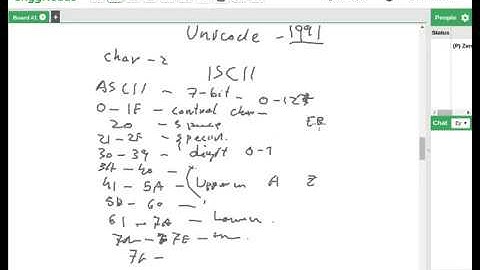 Board #1
People
Status
(P) Zen
Chat
Unicode - 1991
char - 2
ISCII
ASCII - 7-bit - 0-127
0 - 1F - control char
20 - space
21 - 2F - special
30 - 39 - digit 0-9
3A - 40 -
41 - 5A - Upper A Z
5B - 60 -
61 - 7A - Lower
7E -